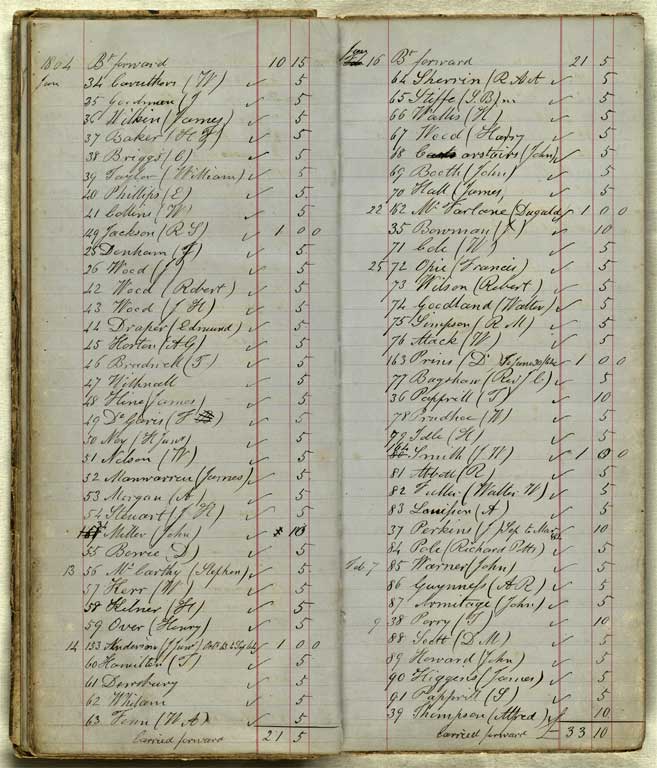 1864 Bt forward 10 15
Jan 34 Caruthers (W) ✓ 5
25 Goodman (J ✓ 5
36 Wilkin (James) ✓ 5
37 Baker (H J) ✓ 5
38 Briggs (C) ✓ 5
39 Taylor (William) ✓ 5
40 Phillips (E) ✓ 5
41 Collins (W) ✓ 5
49 Jackson (R S) ✓ 1 0 0
25 Denham (J) ✓ 5
26 Wood (J) ✓ 5
42 Wood (Robert) ✓ 5
43 Wood (J H) ✓ 5
44 Draper (Edmund) ✓ 5
45 Horton (A G) ✓ 5
46 Bradwick (T) ✓ 5
47 Withnall ✓ 5
48 Hine (James) ✓ 5
49 De Garis (F ✓ 5
50 Noy (H Junr) ✓ 5
51 Nelson (W) ✓ 5
52 Manwarren (James) ✓ 5
53 Morgan (A) ✓ 5
54 Steuart (J H) ✓ 5
34 Miller (John) ✓ 10
55 Berrie (D) ✓ 5
13 56 Mc Carthy (Stephen) ✓ 5
57 Kerr (W) ✓ 5
58 Kilner (H) ✓ 5
59 Over (Henry) ✓ 5
14 133 Anderson (J Junr) ✓ 1 0 0
60 Hamilton (T) ✓ 5
61 Dewsbury ✓ 5
62 Whilam ✓ 5
63 Fenn (W A) ✓ 5
Carried forward 21 5
Jany 16 Bt forward 21 5
64 Sherrin (R A A ✓ 5
65 Stiffe (G. B) ✓ 5
66 Wallis (H) ✓ 5
67 Weed (Harry ✓ 5
68 Carstairs (John) ✓ 5
69 Booth (John) ✓ 5
70 Hall (James) ✓ 5
22 42 Mc Farlane (Dugald) ✓ 1 0 0
35 Bowman (J) ✓ 10
71 Cole (W) ✓ 5
25 72 Opie (Francis) ✓ 5
73 Wilson (Robert) ✓ 5
74 Goodland (Walter) ✓ 5
75 Simpson (R M) ✓ 5
76 Atack (W) ✓ 5
163 Prins (Dr to June 30/64 ✓ 1 0 0
77 Bagshaw (Revd C) ✓ 5
36 Paprill (T) ✓ 10
78 Prudhoe (W) ✓ 5
79 Idle (H) ✓ 5
164 Smith (J W) ✓ 1 0 0
81 Abbott (R) ✓ 5
82 Fuller (Walter W) ✓ 5
83 Louison (A) ✓ 5
37 Perkins (J) Sep to Mar ✓ 10
84 Pole (Richard Potts) ✓ 5
Feb 7 85 Warner (John) ✓ 5
86 Guynness (A R) ✓ 5
87 Armitage (John) ✓ 5
9 38 Perry (T) ✓ 10
88 Scott (D M) ✓ 5
89 Howard (John) ✓ 5
90 Higgens (James) ✓ 5
91 Paprill (S) ✓ 5
39 Thompson (Alfred) ✓ 10
Carried forward 33 10